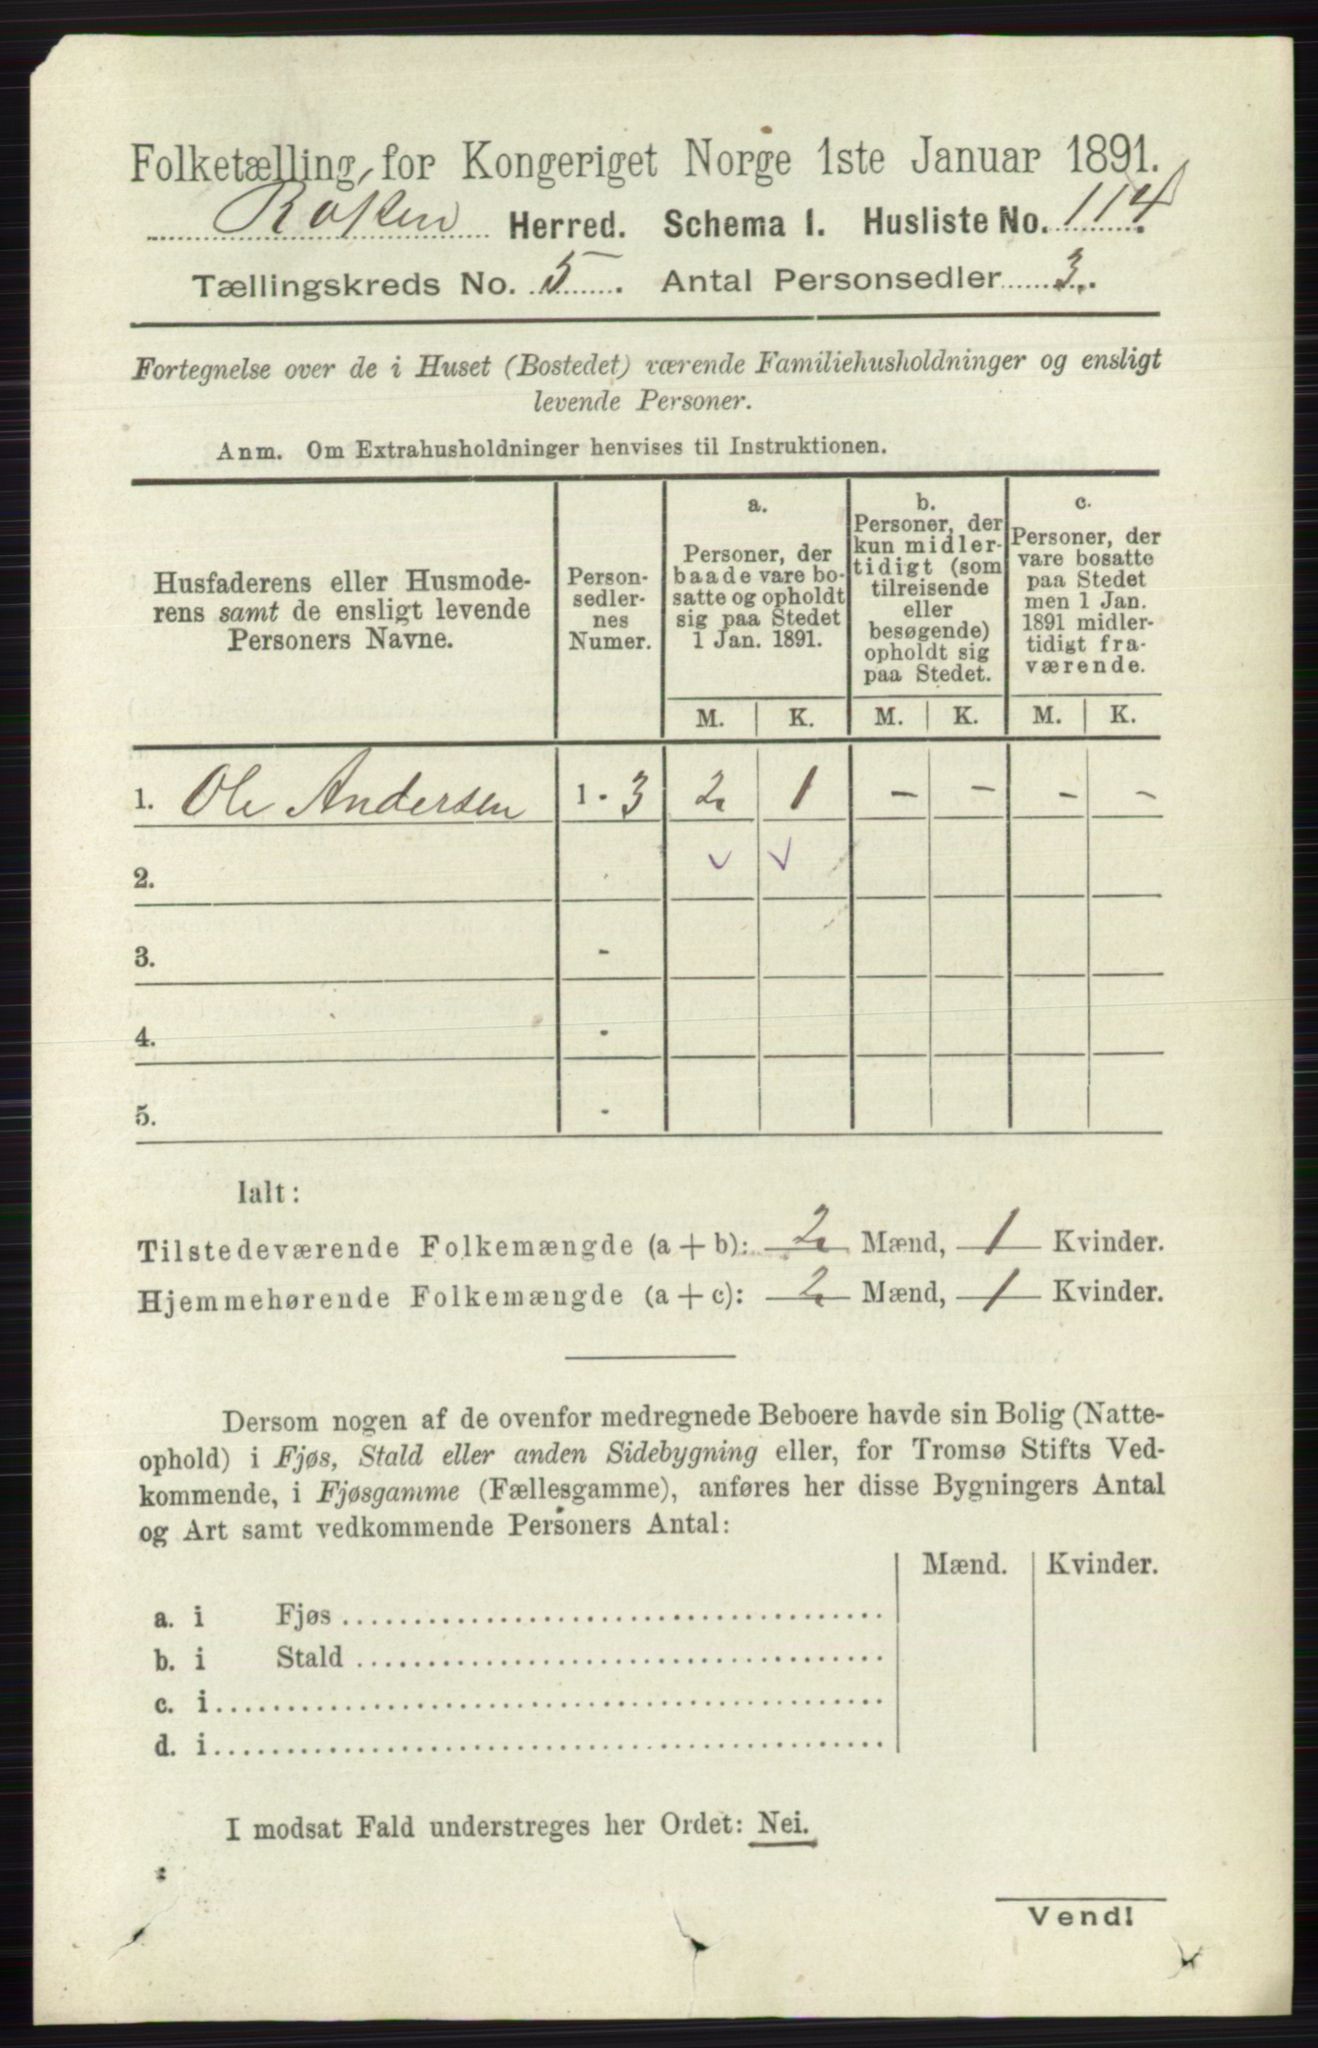 Folketælling for Kongeriget Norge 1ste Januar 1891.
Røken Herred. Schema I. Husliste No. 114.
Tællingskreds No. 5. Antal Personsedler 3.
Fortegnelse over de i Huset (Bostedet) værende Familiehusholdninger og ensligt
levende Personer.
Anm. Om Extrahusholdninger henvises til Instruktionen.
Husfaderens eller Husmode-
rens samt de ensligt levende
Personers Navne.
Person-
sedler-
nes
Numer.
a.
Personer, der
baade vare bo-
satte og opholdt
sig paa Stedet
1 Jan. 1891.
b.
Personer, der
kun midler-
tidigt (som
tilreisende
eller
besøgende)
opholdt sig
paa Stedet.
c.
Personer, der
vare bosatte
paa Stedet
men 1 Jan.
1891 midler-
tidigt fra-
værende.
M. K. M. K. M. K.
1. Ole Andersen 1 - 3 2 1 - - - -
2.
3. -
4. -
5. -
Ialt:
Tilstedeværende Folkemængde (a + b): 2 Mænd, 1 Kvinder.
Hjemmehørende Folkemængde (a + c): 2 Mænd, 1 Kvinder.
Dersom nogen af de ovenfor medregnede Beboere havde sin Bolig (Natte-
ophold) i Fjøs, Stald eller anden Sidebygning eller, for Tromsø Stifts Ved-
kommende, i Fjøsgamme (Fællesgamme), anføres her disse Bygningers Antal
og Art samt vedkommende Personers Antal:
Mænd. Kvinder.
a. i Fjøs
b. i Stald
c. i
d. i
I modsat Fald understreges her Ordet: Nei.
Vend!